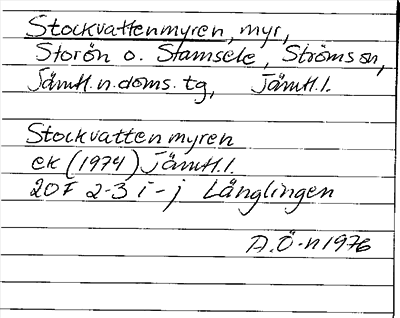 Stockvattenmyren, myr,
Storön o. Stamsele, Ströms sn,
Jämtl. n. doms. tg, Jämtl. l.
Stockvattenmyren
ek (1974) Jämtl. l.
20F 2-3 i-j Länglingen
A.Ö-n 1976